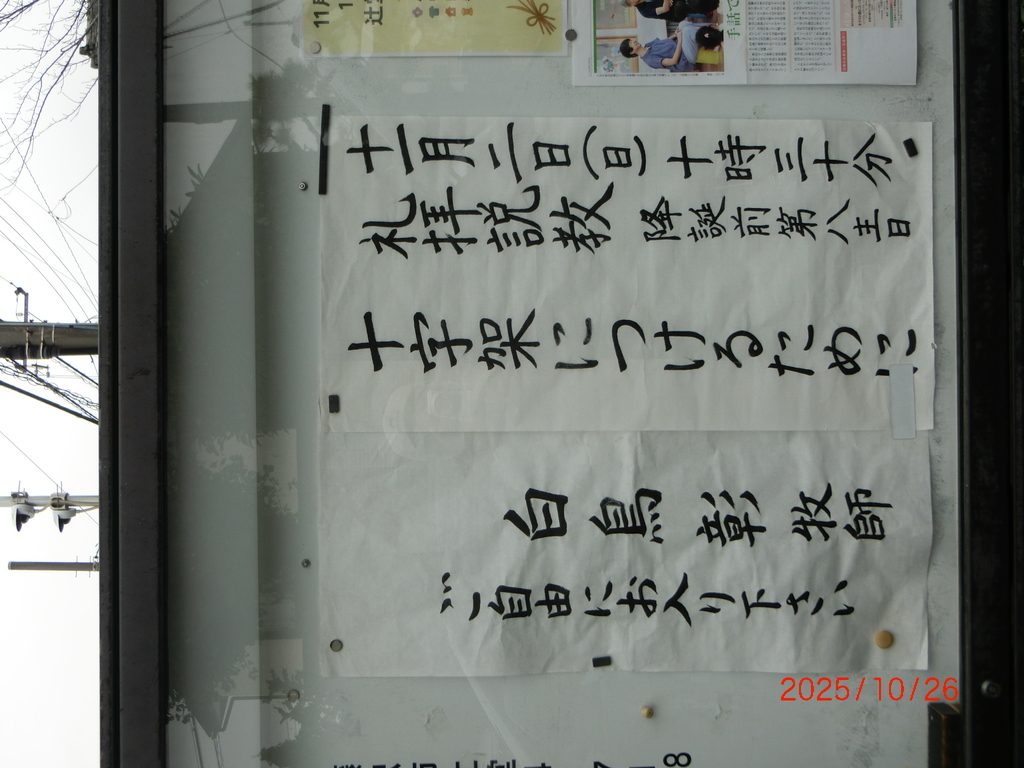 11月
手話で
十一月二日(日)十時三十分
礼拝説教 降誕前第八主日
十字架につけるために
白鳥彰牧師
ご自由にお入り下さい
2025/10/26